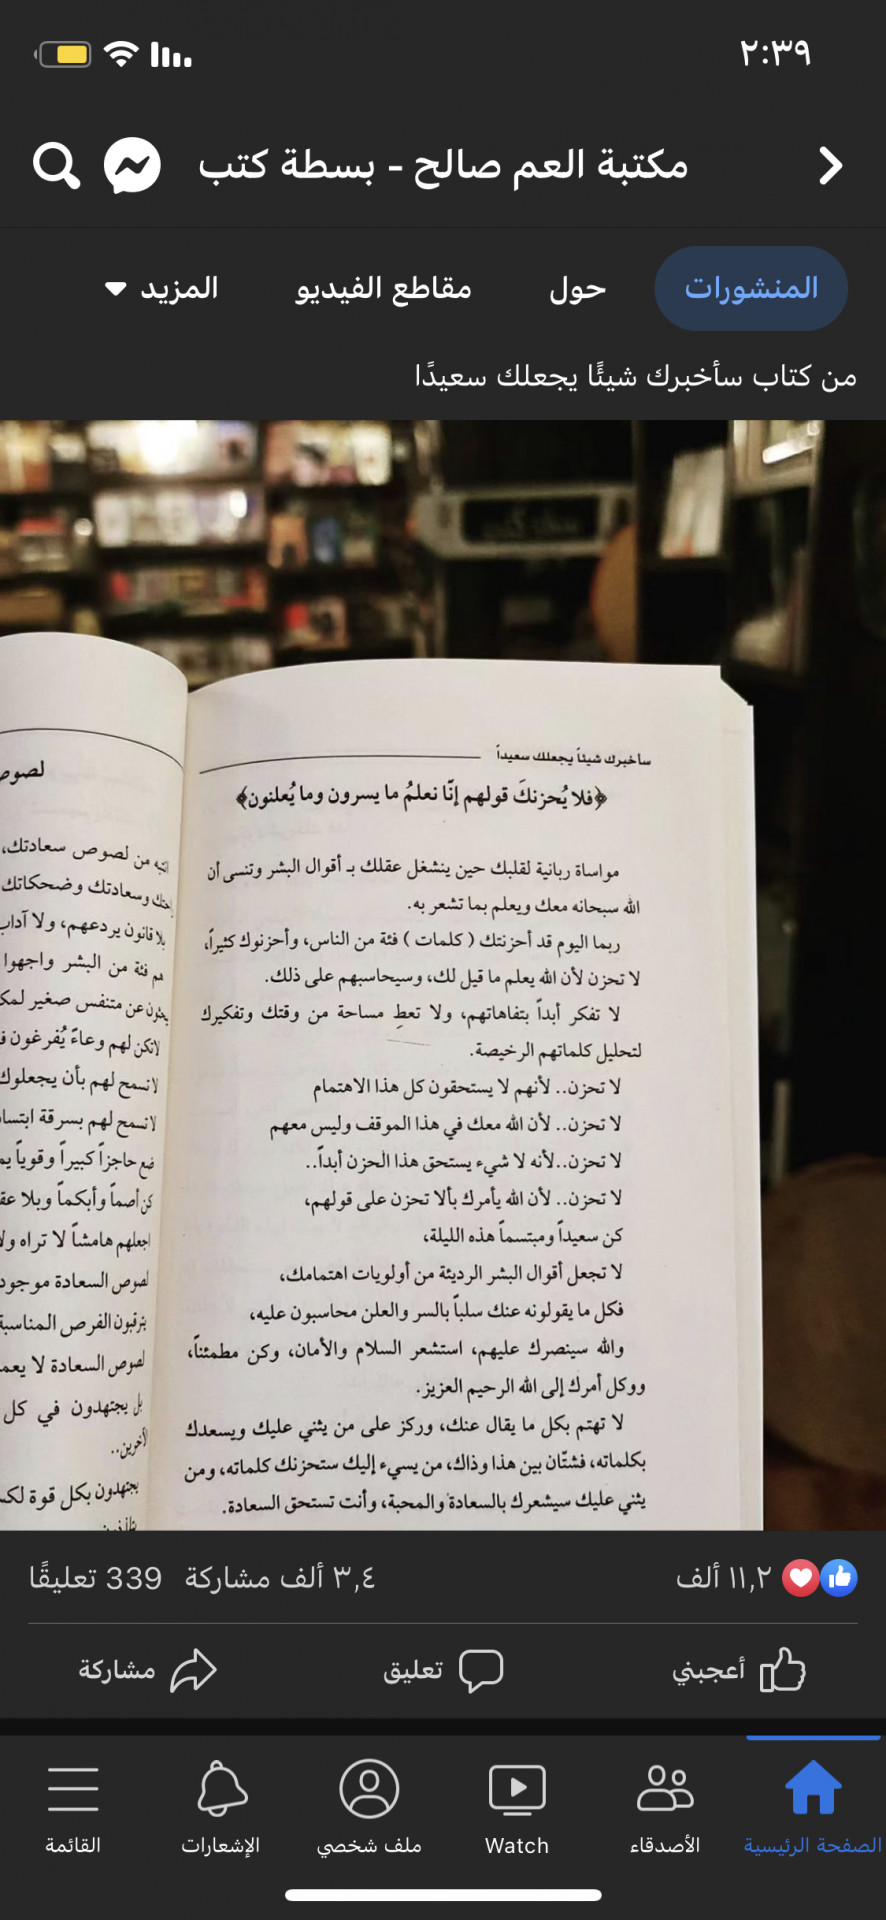 ٢:٣٩
مكتبة العم صالح - بسطة كتب
المنشورات
حول
مقاطع الفيديو
المزيد
من كتاب سأخبرك شيئًا يجعلك سعيدًا
سأخبرك شيئاً يجعلك سعيداً
﴿فلا يُحزنكَ قولهم إنّا نعلمُ ما يسرون وما يُعلنون﴾
مواساة ربانية لقلبك حين ينشغل عقلك بـ أقوال البشر وتنسى أن
الله سبحانه معك ويعلم بما تشعر به.
ربما اليوم قد أحزنتك ( كلمات ) فئة من الناس، وأحزنوك كثيراً،
لا تحزن لأن الله يعلم ما قيل لك، وسيحاسبهم على ذلك.
لا تفكر أبداً بتفاهاتهم، ولا تعطِ مساحة من وقتك وتفكيرك
لتحليل كلماتهم الرخيصة.
لا تحزن.. لأنهم لا يستحقون كل هذا الاهتمام
لا تحزن.. لأن الله معك في هذا الموقف وليس معهم
لا تحزن..لأنه لا شيء يستحق هذا الحزن أبداً..
لا تحزن.. لأن الله يأمرك بألا تحزن على قولهم،
كن سعيداً ومبتسماً هذه الليلة،
لا تجعل أقوال البشر الرديئة من أولويات اهتمامك،
فكل ما يقولونه عنك سلباً بالسر والعلن محاسبون عليه،
والله سينصرك عليهم، استشعر السلام والأمان، وكن مطمئناً،
ووكل أمرك إلى الله الرحيم العزيز.
لا تهتم بكل ما يقال عنك، وركز على من يثني عليك ويسعدك
بكلماته، فشتّان بين هذا وذاك، من يسيء إليك ستحزنك كلماته، ومن
يثني عليك سيشعرك بالسعادة والمحبة، وأنت تستحق السعادة.
انتبه من لصوص سعادتك،
وسعادتك وضحكاتك
بلا قانون يردعهم، ولا آداب
هم فئة من البشر واجهوا
عن متنفس صغير
لا تكن لهم وعاءً يُفرغون
لا تسمح لهم بأن يجعلوك
لا تسمح لهم بسرقة
ضع حاجزاً كبيراً وقوياً
كن أصماً وأبكماً وبلا
اجعلهم هامشاً لا تراه
لصوص السعادة
يترقبون الفرص المناسبة
لصوص السعادة لا
بل يجتهدون في كل
الآخرين..
يجتهدون بكل قوة
١١,٢ ألف
٣,٤ ألف مشاركة
339 تعليقًا
أعجبني
تعليق
مشاركة
الصفحة الرئيسية
الأصدقاء
Watch
ملف شخصي
الإشعارات
القائمة